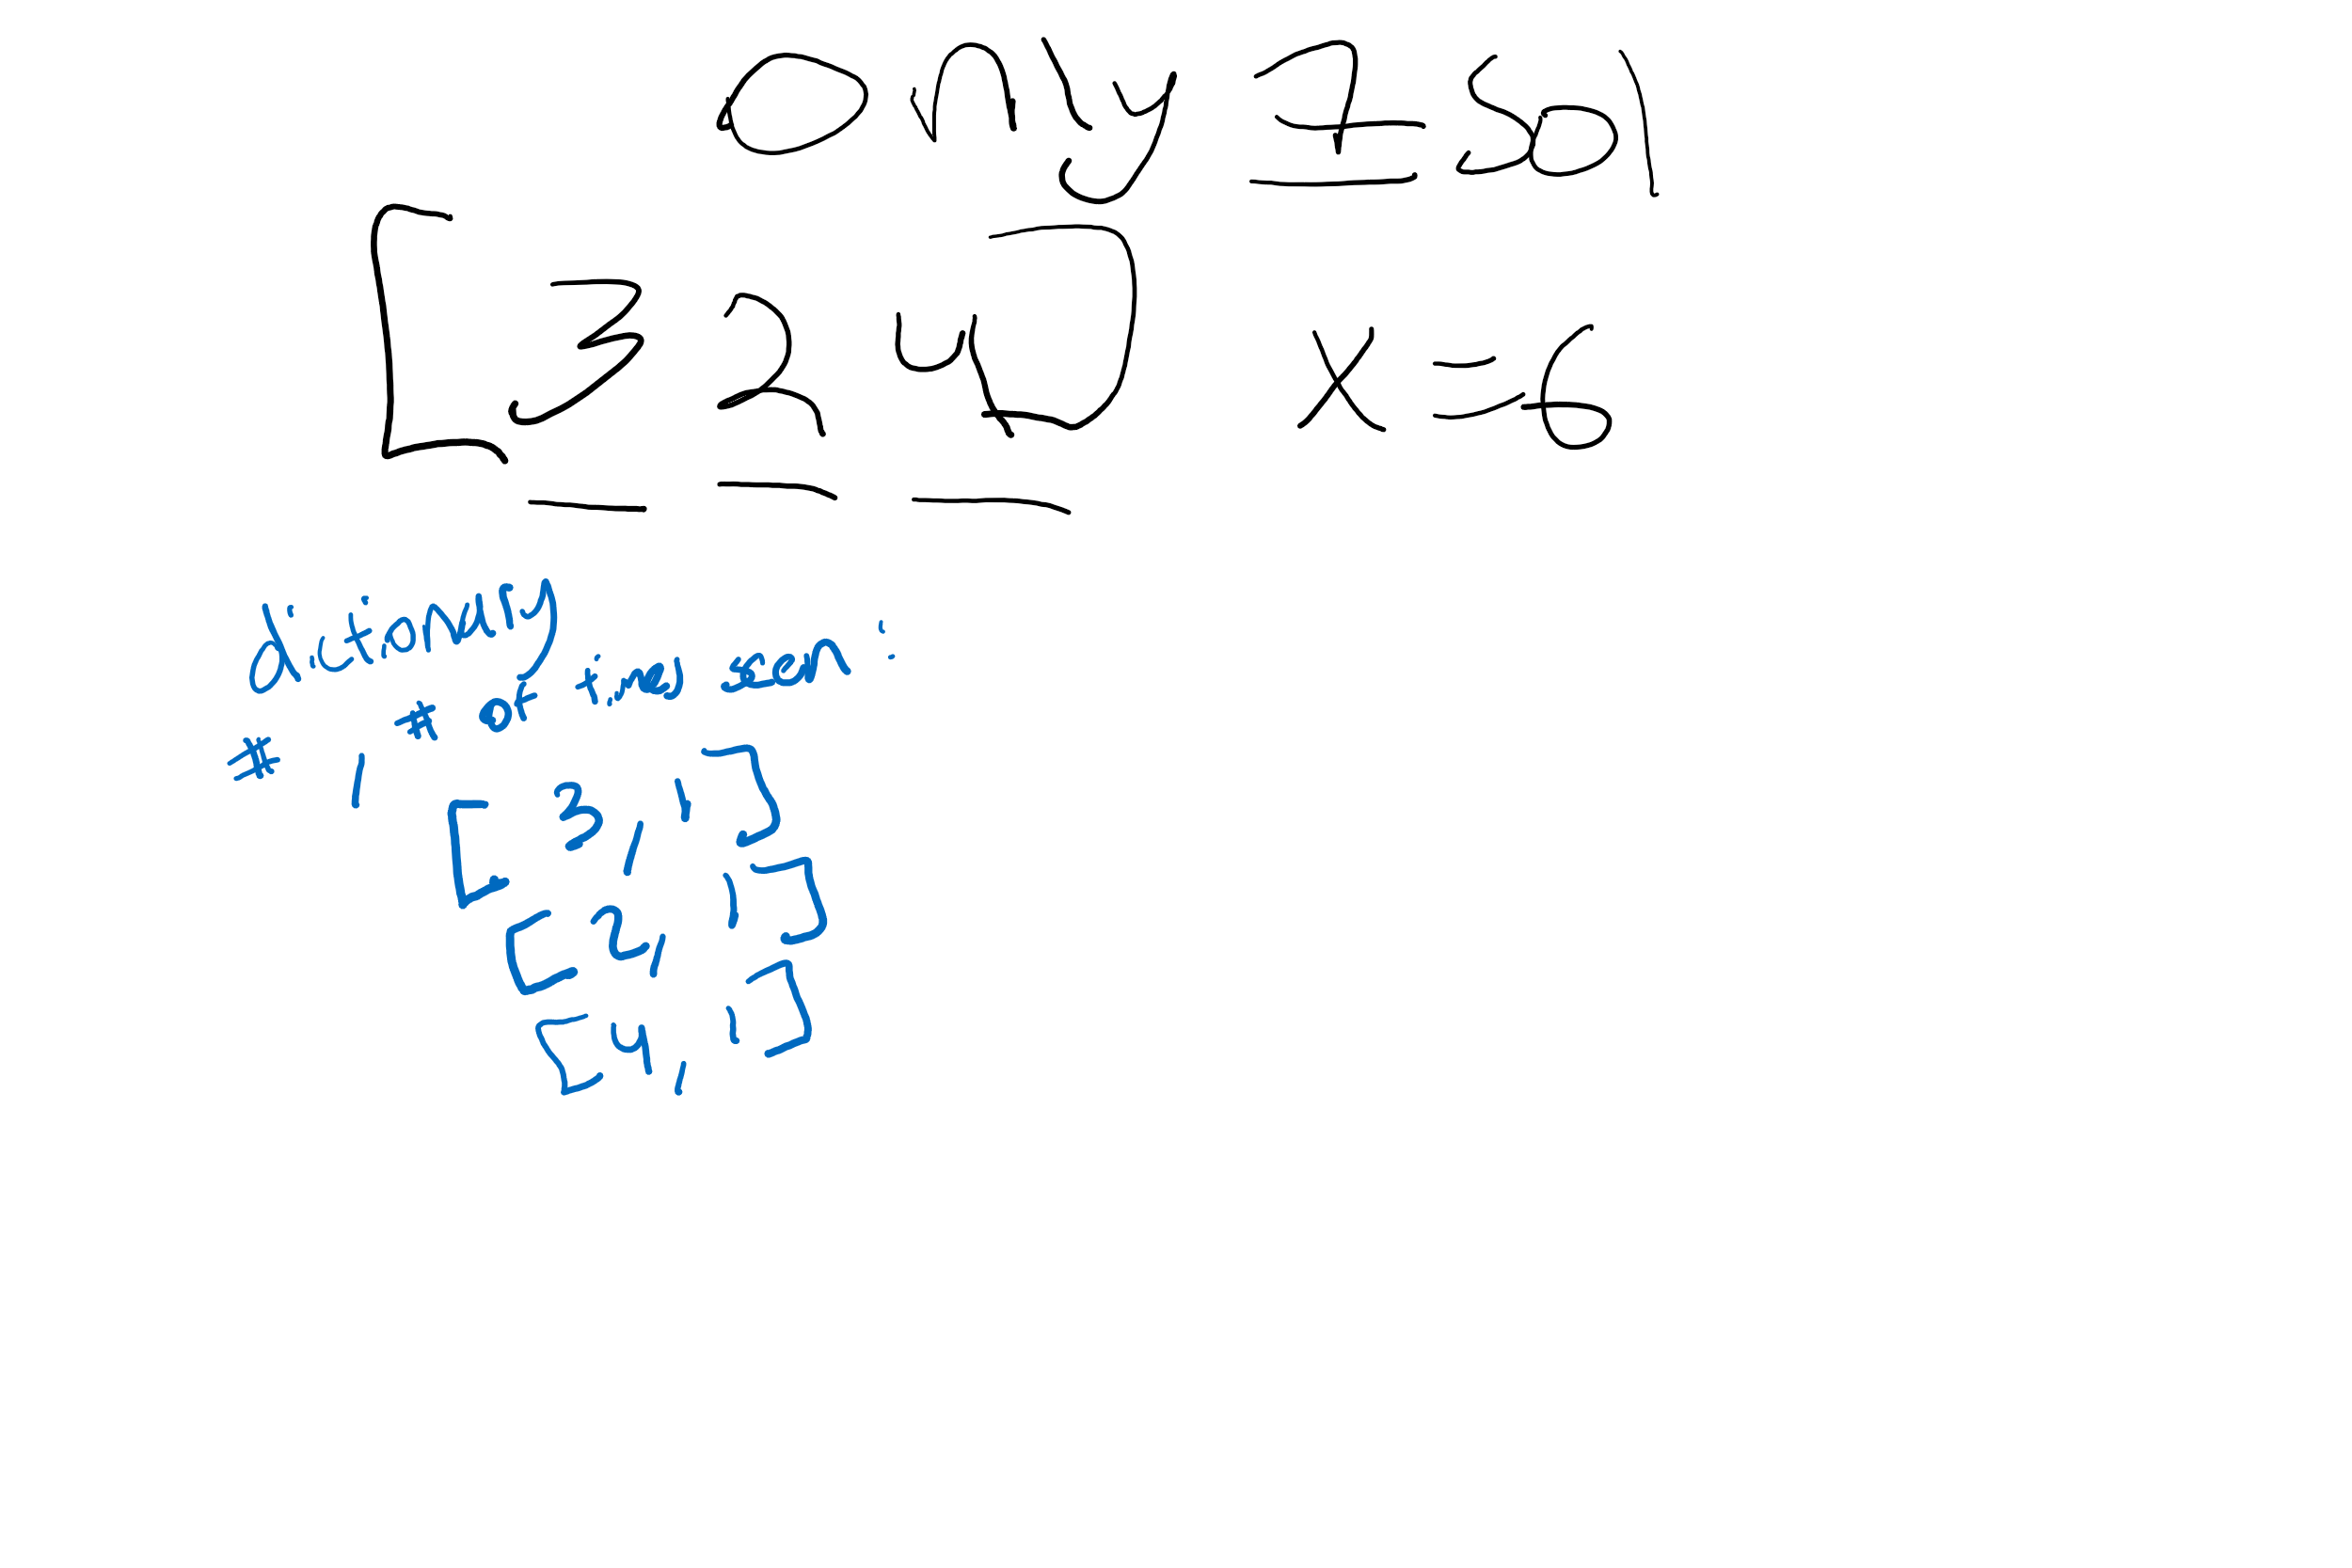 Only 1 sol
[3 2 4] x = 6
dictionary
# , # of times seen :
[3, 1]
[2, 1]
[4, 1]